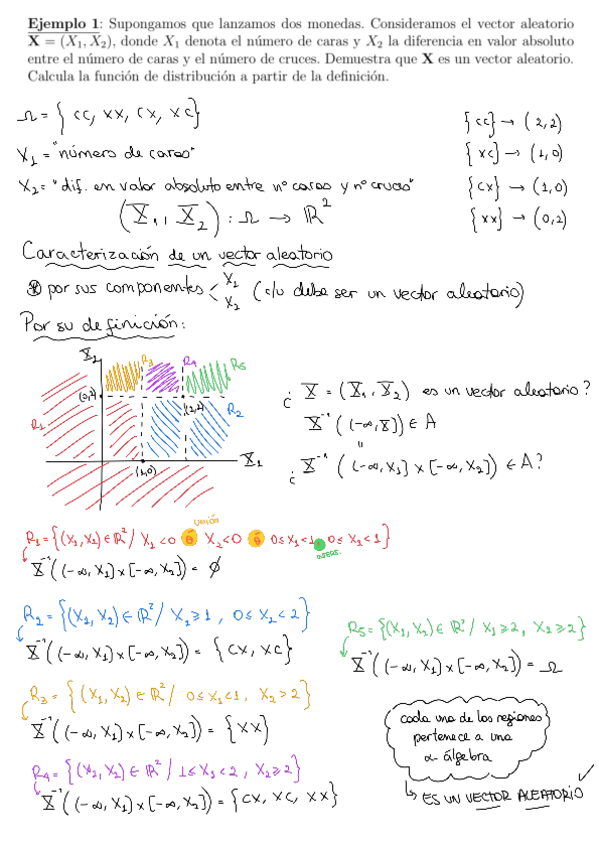 Ejemplo 1: Supongamos que lanzamos dos monedas. Consideramos el vector aleatorio
X = (X₁, X₂), donde X₁ denota el número de caras y X₂ la diferencia en valor absoluto
entre el número de caras y el número de cruces. Demuestra que X es un vector aleatorio.
Calcula la función de distribución a partir de la definición.
Ω = { CC, XX, CX, XC}
X₁ = "número de caras"
X₂ = "dif. en valor absoluto entre nº caras y nº cruces"
(X₁, X₂) : Ω → ℝ²
{CC} → (2,2)
{XC} → (1,0)
{CX} → (1,0)
{XX} → (0,2)
Caracterización de un vector aleatorio
⊛ por sus componentes < X₁ X₂ (c/u debe ser un vector aleatorio)
Por su definición:
X₂
R₃ R₄ R₅
(0,2)
(2,2)
R₁ R₂
X₁
(1,0)
¿ X = (X₁, X₂) es un vector aleatorio?
X⁻¹ ((-∞, x]) ∈ A
"
¿ X⁻¹ ( (-∞, X₁] × [-∞, X₂]) ∈ A?
unión
R₁ = {(X₁, X₂) ∈ ℝ² / X₁ < 0 ó X₂ < 0 ó 0 ≤ X₁ < 1, 0 ≤ X₂ < 1}
inters.
X⁻¹ ((-∞, X₁) × [-∞, X₂]) = ∅
R₂ = {(X₁, X₂) ∈ ℝ² / X₁ ≥ 1, 0 ≤ X₂ < 2}
X⁻¹ ((-∞, X₁) × [-∞, X₂]) = {CX, XC}
R₃ = { (X₁, X₂) ∈ ℝ² / 0 ≤ X₁ < 1, X₂ > 2}
X⁻¹ ((-∞, X₁) × [-∞, X₂)) = {XX}
R₄ = {(X₂, X₂) ∈ ℝ² / 1 ≤ X₁ < 2, X₂ ≥ 2}
X⁻¹ ((-∞, X₁) × [-∞, X₂)) = {CX, XC, XX}
R₅ = {(X₁, X₂) ∈ ℝ² / X₁ ≥ 2, X₂ ≥ 2}
X⁻¹ ((-∞, X₁) × [-∞, X₂]) = Ω
cada una de las regiones
pertenece a una
α álgebra
↳ ES UN VECTOR ALEATORIO ✓